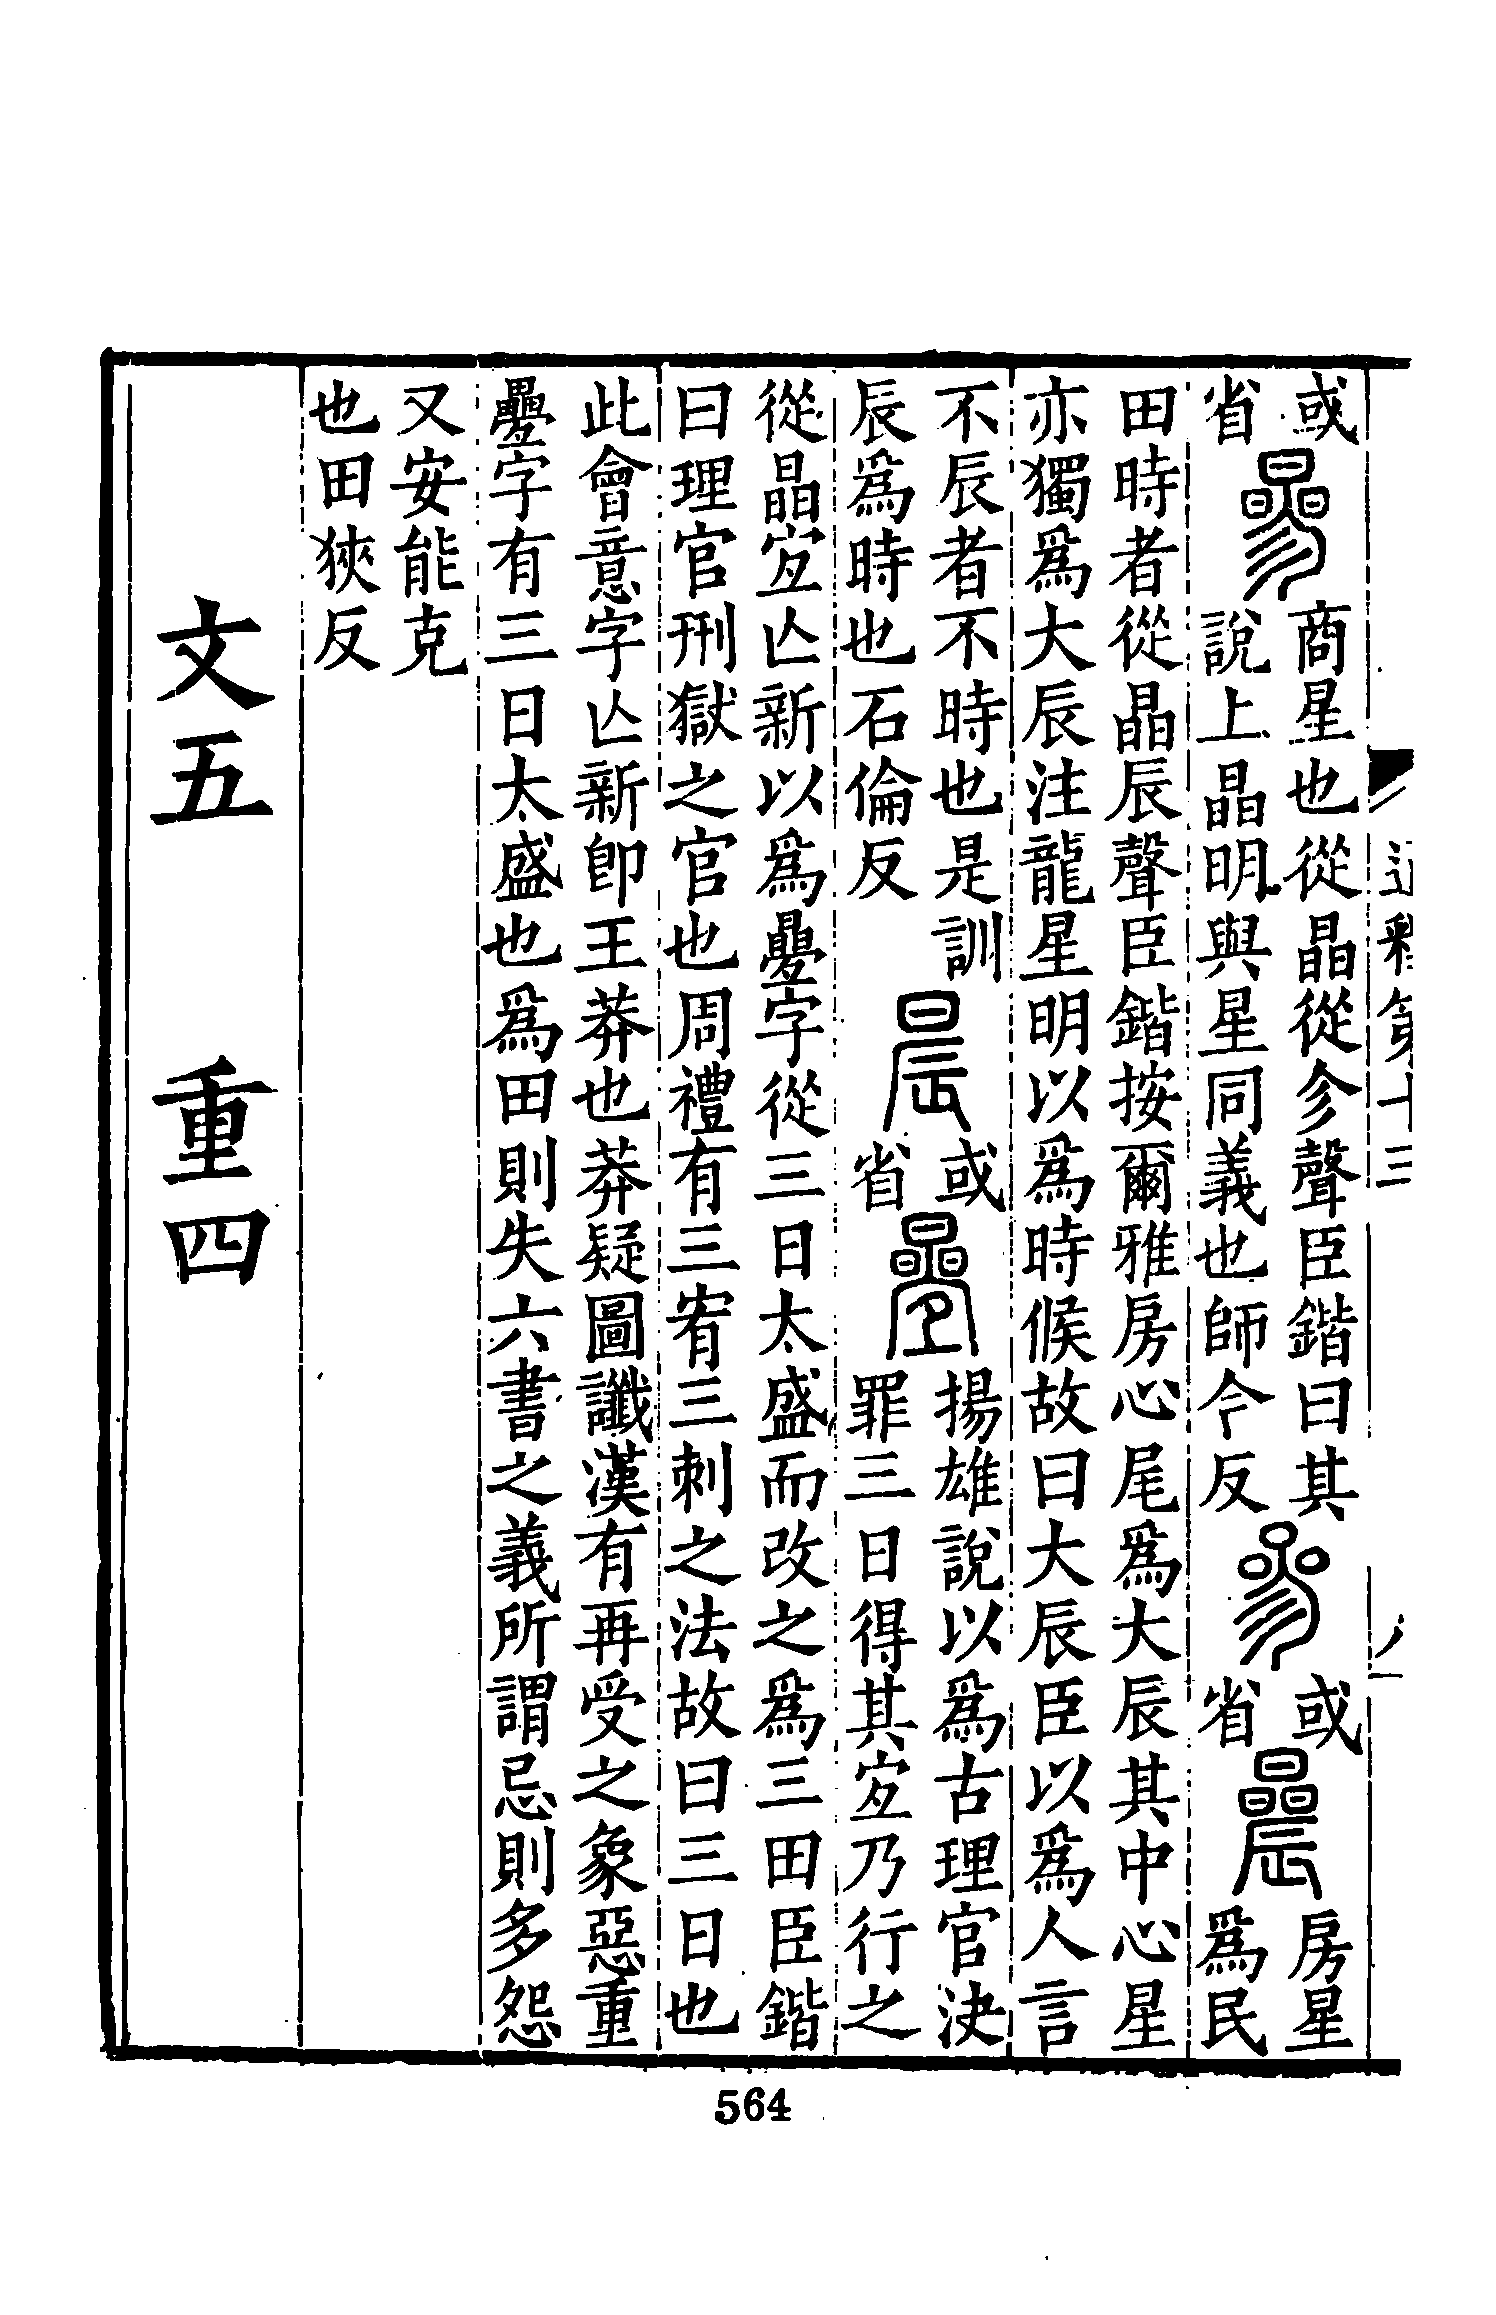 或省曑商星也從晶從㐱聲臣鍇曰其
說上晶明與星同義也師今反參或省曟房星
爲民
田時者從晶辰聲臣鍇按爾雅房心尾爲大辰其中心星
亦獨爲大辰注龍星明以爲時候故曰大辰臣以爲人言
不辰者不時也是訓
辰爲時也石倫反晨或省曡揚雄說以爲古理官決
罪三日得其宐乃行之
從晶宐亾新以爲曡字從三日太盛而改之爲三田臣鍇
曰理官刑獄之官也周禮有三宥三刺之法故曰三日也
此會意字亾新卽王莽也莽疑圖讖漢有再受之象惡重
曡字有三日太盛也爲田則失六書之義所謂忌則多怨
又安能克
也田狹反
文五 重四
564